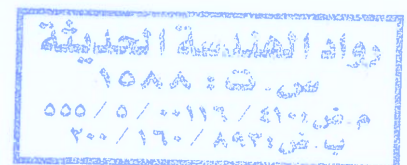 رواد الهندسة الحديثة
س.ت: ١٥٨٨
م.ض: ٤١٠ / ٠٠١١٦ / ٥ / ٥٥٥
ب.ض: ٨٩٣ / ١٦٠ / ٢٠٠